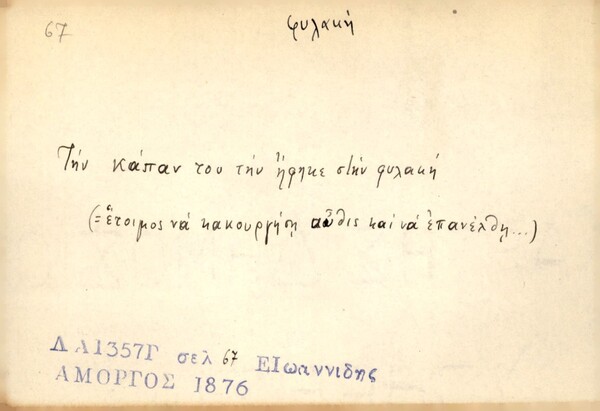 67
φυλακή
Τήν κάπαν του τήν ἤφηκε στήν φυλακή
(=ἕτοιμος νά κακουργήσῃ αὖθις καί νά ἐπανέλθῃ...)
ΔΑ1357Γ σελ 67 ΕΙωαννιδης
ΑΜΟΡΓΟΣ 1876